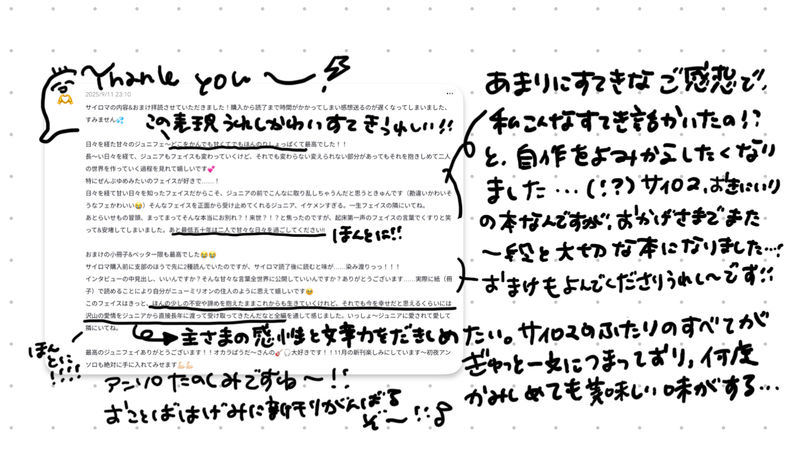 Thank you〜!
2025/9/11 23:10
サイロマの内容&おまけ拝読させていただきました！購入から読了まで時間がかかってしまい感想送るのが遅くなってしまいました、
すみません💦
この表現うれしかわいすてきうれしい!!
日々を経た甘々なジュニフェ〜どこをかんでも甘くてでもほんの少ししょっぱくて最高でした！！
長〜い日々を経て、ジュニアもフェイスも変わっていくけど、それでも変わらない変えられない部分があってもそれを抱きしめて二人
の世界を作っていく過程を見れて嬉しいです💕
特にぜんぶゆめみたいのフェイスが好きで……！
日々を経て甘い日々を知ったフェイスだからこそ、ジュニアの前でこんなに取り乱しちゃうんだと思うときゅんです（勘違いかわいそ
うなフェかわいい😭）そんなフェイスを正面から受け止めてくれるジュニア、イケメンすぎる。一生フェイスの隣にいてね。
あとらいせもの冒頭、まってまってそんな本当にお別れ？！来世？！？と焦ったのですが、起床第一声のフェイスの言葉でくすりと笑
って&安堵してしまいました。あと最低五十年は二人で甘々な日々を過ごしてください!!
ほんとに!!
おまけの小冊子&ペッター限も最高でした😭😭
サイロマ購入前に支部のほうで先に2種読んでいたのですが、サイロマ読了後に読むと味が……染み渡りっっ！！！
インタビューの中見出し、いいんですか！そんな甘々な言葉全世界に公開していいんですか？ありがとうございます……実際に紙（冊
子）で読めることにより自分がニューミリオンの住人のように思えて嬉しいです🥹
このフェイスはきっと、ほんの少しの不安や諦めを抱えたままこれからも生きていくけれど、それでも今を幸せだと思えるくらいには
沢山の愛情をジュニアから直接長年に渡って受け取ってきたんだなと全編を通して感じました。いっしょ〜ジュニアに愛されて愛して
隣にいてね。
最高のジュニフェイありがとうございます！！オカラぱうだ〜さんの🎸🎧大好きです！！11月の新刊楽しみにしています〜初夜アン
ソロも絶対に手に入れてみせます💪🏻💪🏻
ほんとに!!!!
アンソロたのしみですね〜!!
おことばはげみに新刊がんばるぞ〜!!
あまりにすてきなご感想で、
私こんなすてきな話かいたの!?
と、自作をよみかえしたくなり
ました…(!?)サイロマ、お気にいり
の本なんですが、おかげさまでまた
一段と大切な本になりました…!
おまけもよんでくださりうれし〜です!!
主さまの感性と文章力をだきしめたい。サイロマのふたりのすべてが
ぎゅっと一文につまっており、何度
かみしめても美味しい味がする…